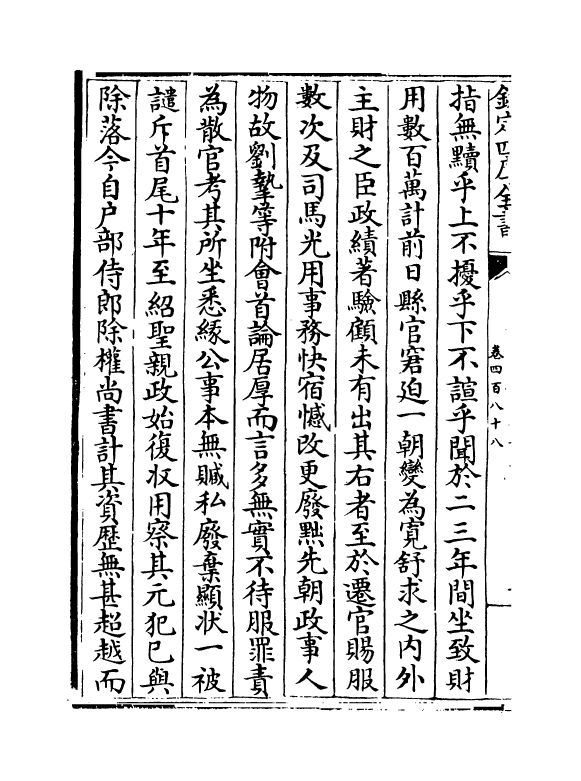 欽定四庫全書
卷四百八十八
指無黷乎上不擾乎下不諠乎聞於二三年間坐致財
用數百萬計前日縣官窘迫一朝變為寛舒求之内外
主財之臣政績著驗顧未有出其右者至於遷官賜服
數次及司馬光用事務快宿憾改更廢黜先朝政事人
物故劉摯等附會首論居厚而言多無實不待服罪責
為散官考其所坐悉緣公事本無贓私廢棄顯状一被
譴斥首尾十年至紹聖親政始復收用察其元犯已與
除落今自户部侍郎除權尚書計其資歴無甚超越而